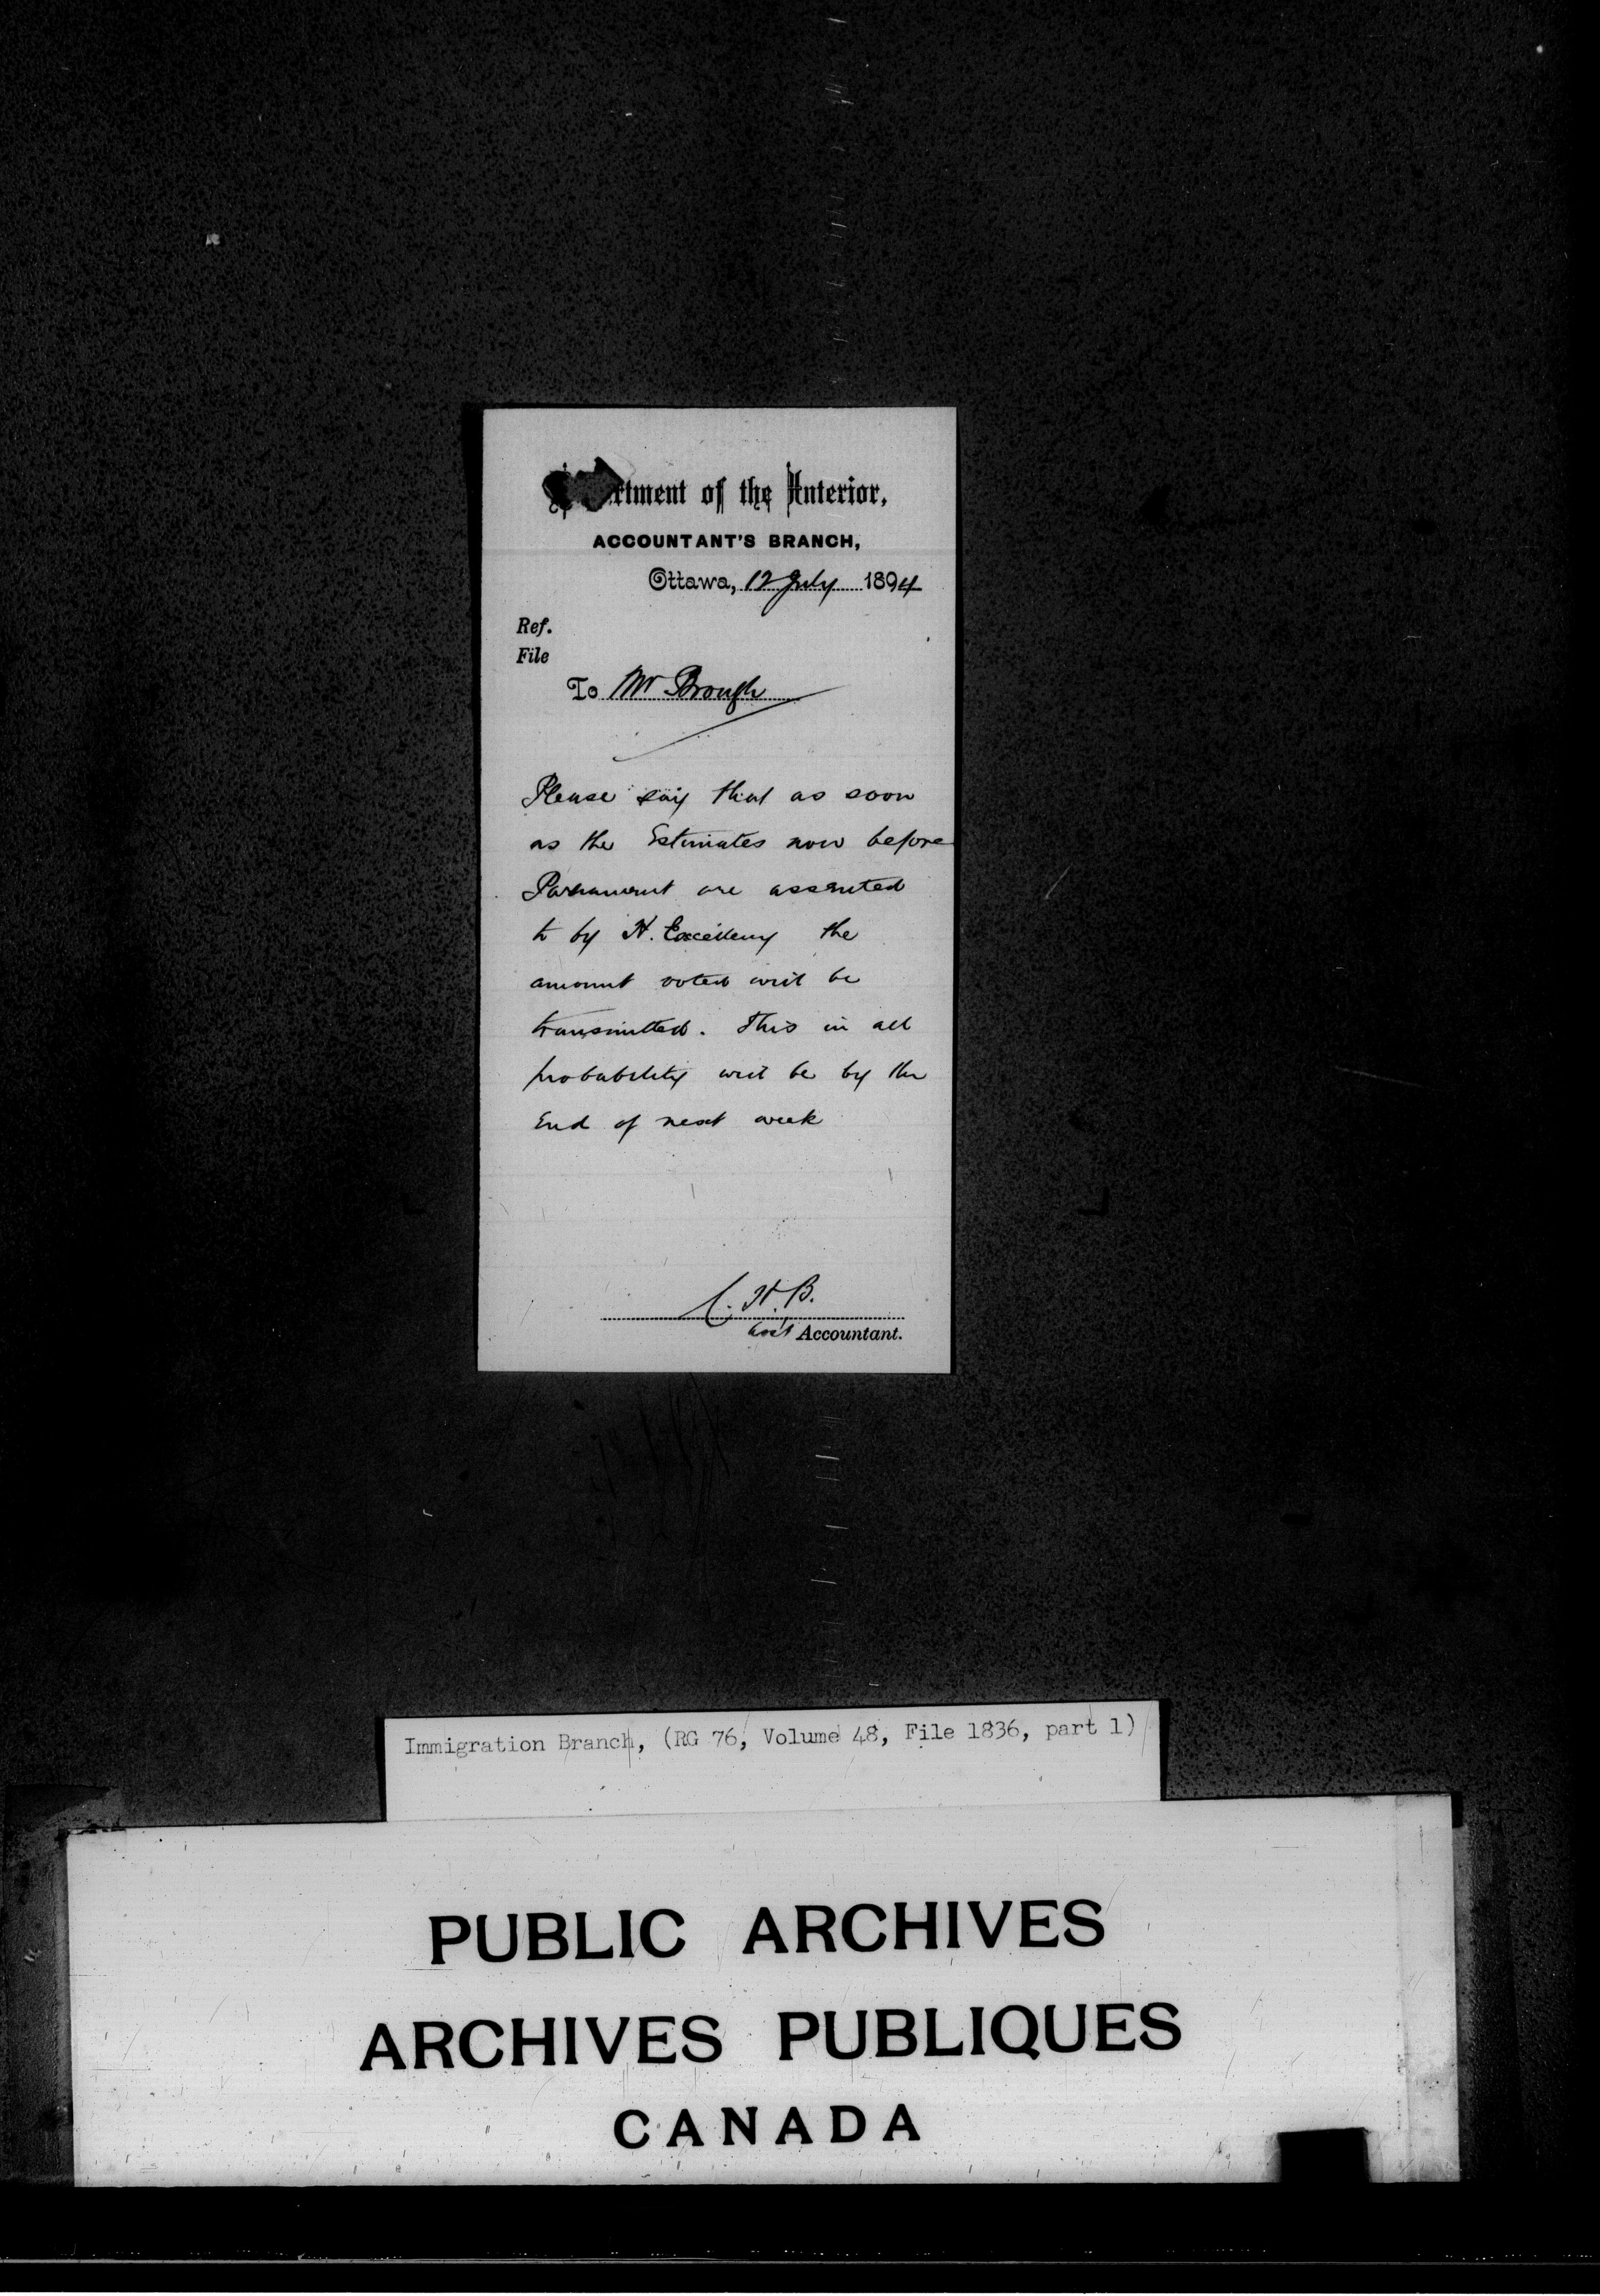 Department of the Interior,
ACCOUNTANT'S BRANCH,
Ottawa, 12 July 1894
Ref.
File
To Mr Brough
Please say that as soon
as the Estimates now before
Parliament are assented
to by H. Excellency the
amount voted will be
transmitted. This in all
probability will be by the
End of next week
C. H. B.
Asst Accountant.
Immigration Branch, (RG 76, Volume 48, File 1836, part 1)
PUBLIC ARCHIVES
ARCHIVES PUBLIQUES
CANADA